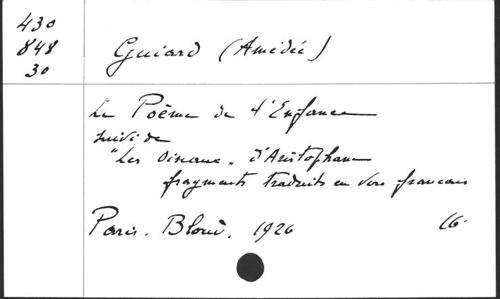 430
848
30
Guiard (Amédée)
Le Poème de l'Enfance
suivi de
"Les Oiseaux" d'Aristophane
fragments traduits en vers francais
Paris. Bloud. 1926
16.